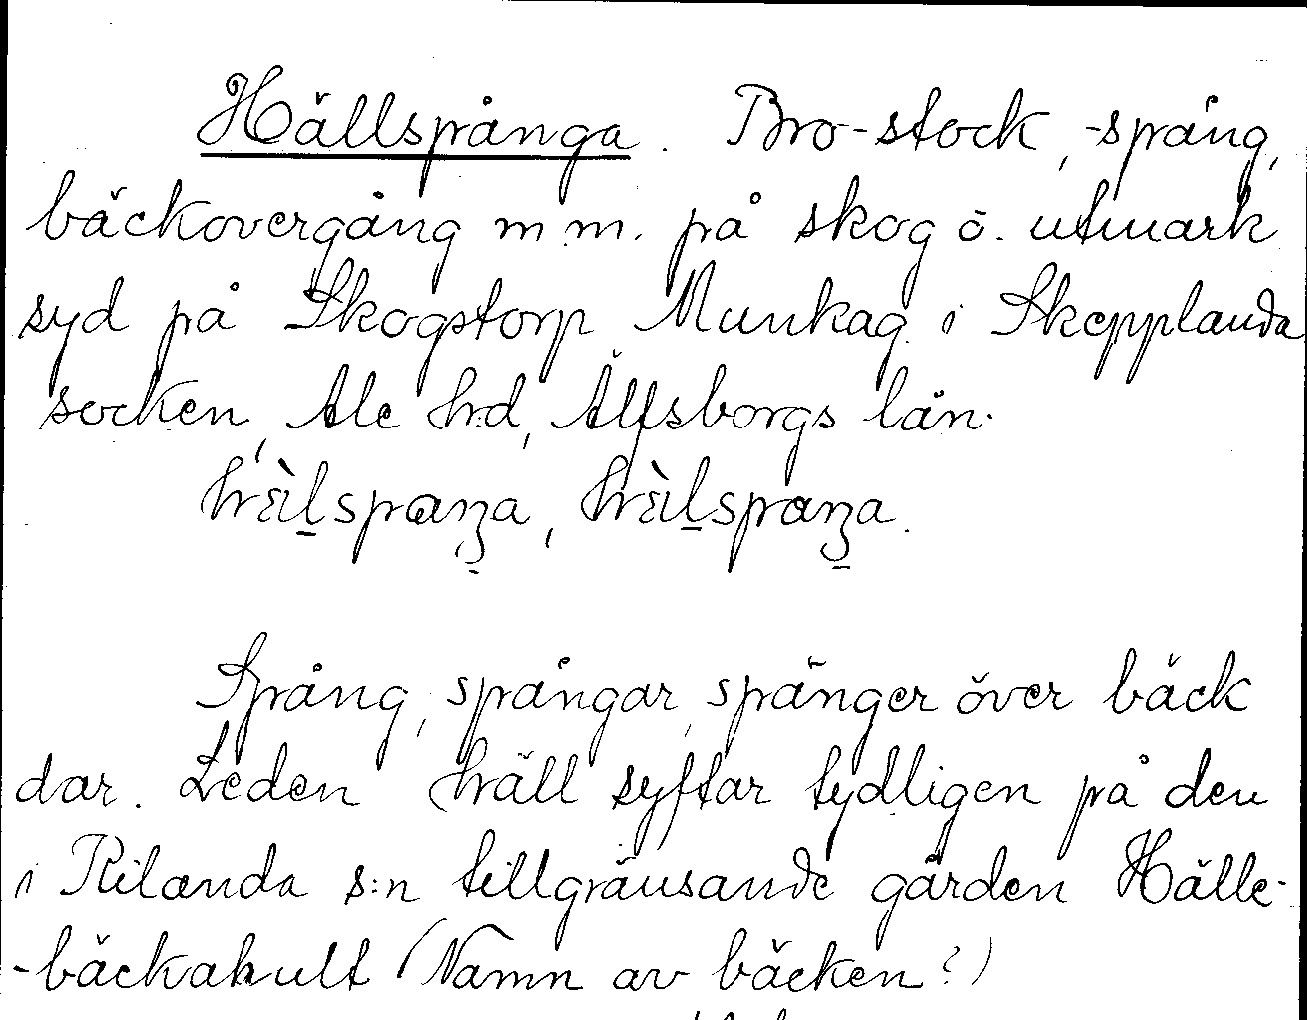 Hällspånga. Bro-stock, -spång,
bäckövergång m.m. på skog o. utmark
syd på Skogstorp Munkag. i Skepplanda
socken, Ale hd, Älfsborgs län.
Spång, spångar, spänger över bäck
där. Leden häll syftar tydligen på den
i Rilanda s:n tillgränsande gården Hälle-
-bäckahult (Namn av bäcken?)